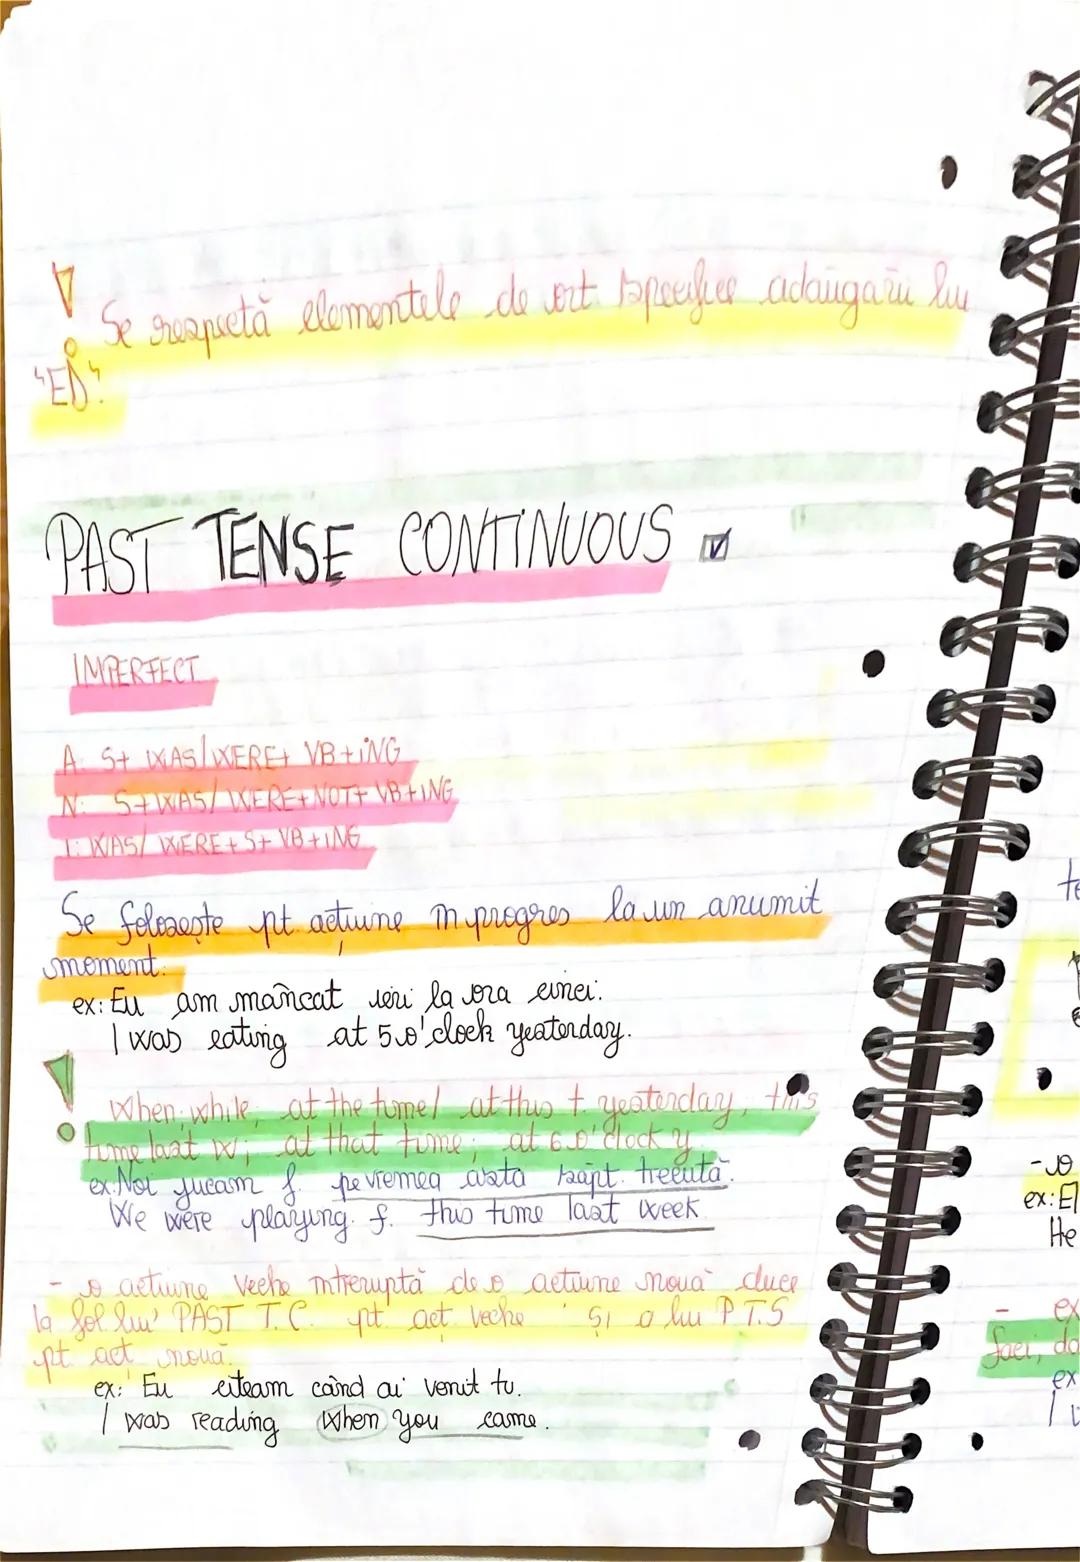 ! Se respectă elementele de ort. specifice adăugării lui
"ED".
PAST TENSE CONTINUOUS
IMPERFECT
A: S+ WAS/WERE+ VB+ING
N: S+WAS/ WERE+NOT+ VB+ING
I: WAS/ WERE+S+ VB+ING
Se folosește pt. acțiune în progres la un anumit
moment.
ex: Eu am mâncat ieri la ora cinci.
I was eating at 5 o'clock yeaterday.
! When; while; at the time/ at this t. yeaterday; this
time last w; at that time; at 6 o'clock y.
ex: Noi jucam f. pe vremea asta săpt. trecută.
We were playing f. this time last week.
- o acțiune veche întreruptă de o acțiune nouă duce
la fol. lui PAST T.C. pt. act. veche și a lui P.T.S
pt. act. nouă.
ex: Eu citeam când ai venit tu.
I was reading when you came.
te
- o
ex: El
He
- ex
faci, da
ex
I